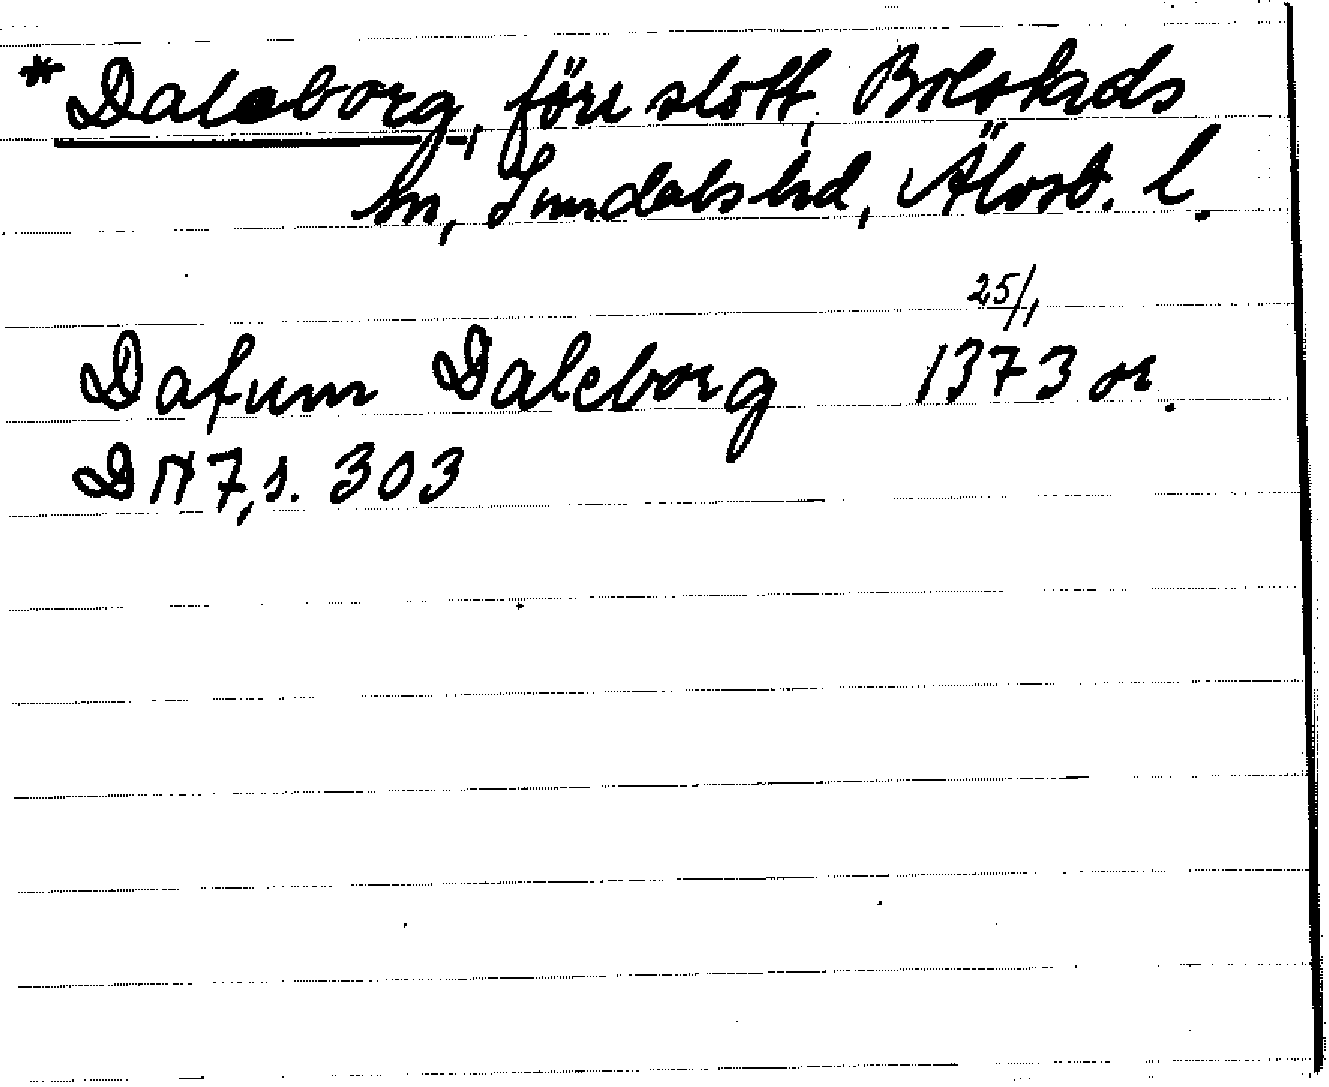 * Daleborg, förr slott, Bolstads
sn, Sundals hd, Älvsb. l.
25/1
Datum Daleborg 1373 or.
DN 7, s. 303